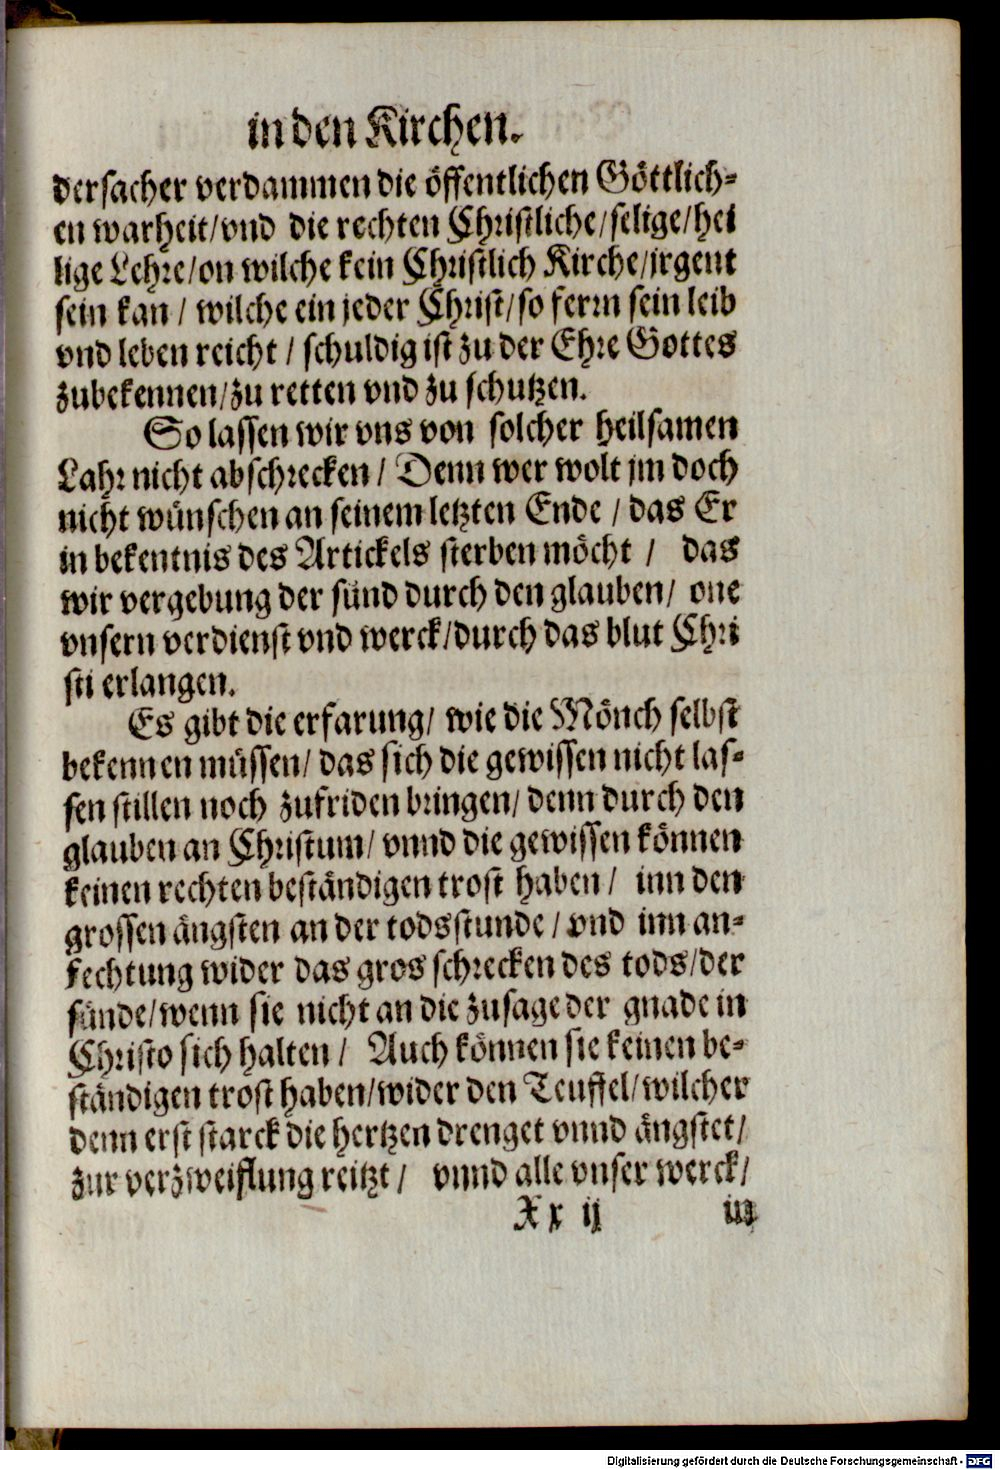 in den Kirchen.
dersacher verdammen die öffentlichen Göttlich-
en warheit/vnd die rechten Christliche/selige/hei
lige Lehre/on wilche kein Christlich Kirche/jrgent
sein kan / wilche ein jeder Christ/so ferrn sein leib
vnd leben reicht / schuldig ist zu der Ehre Gottes
zubekennen/zu retten vnd zu schutzen.
So lassen wir vns von solcher heilsamen
Lahr nicht abschrecken / Denn wer wolt jm doch
nicht wünschen an seinem letzten Ende / das Er
in bekentnis des Artickels sterben möcht / das
wir vergebung der sünd durch den glauben/ one
vnsern verdienst vnd werck/durch das blut Chri
sti erlangen.
Es gibt die erfarung/ wie die Mönch selbst
bekennen müssen/ das sich die gewissen nicht las-
sen stillen noch zufriden bringen/ denn durch den
glauben an Christum/ vnnd die gewissen können
keinen rechten beständigen trost haben / inn den
grossen ängsten an der todsstunde / vnd inn an-
fechtung wider das gros schrecken des tods/der
sünde/wenn sie nicht an die zusage der gnade in
Christo sich halten / Auch können sie keinen be-
ständigen trost haben/wider den Teuffel/wilcher
denn erst starck die hertzen drenget vnnd ängstet/
zur verzweiflung reitzt / vnnd alle vnser werck/
Xx ij in
Digitalisierung gefördert durch die Deutsche Forschungsgemeinschaft - DFG